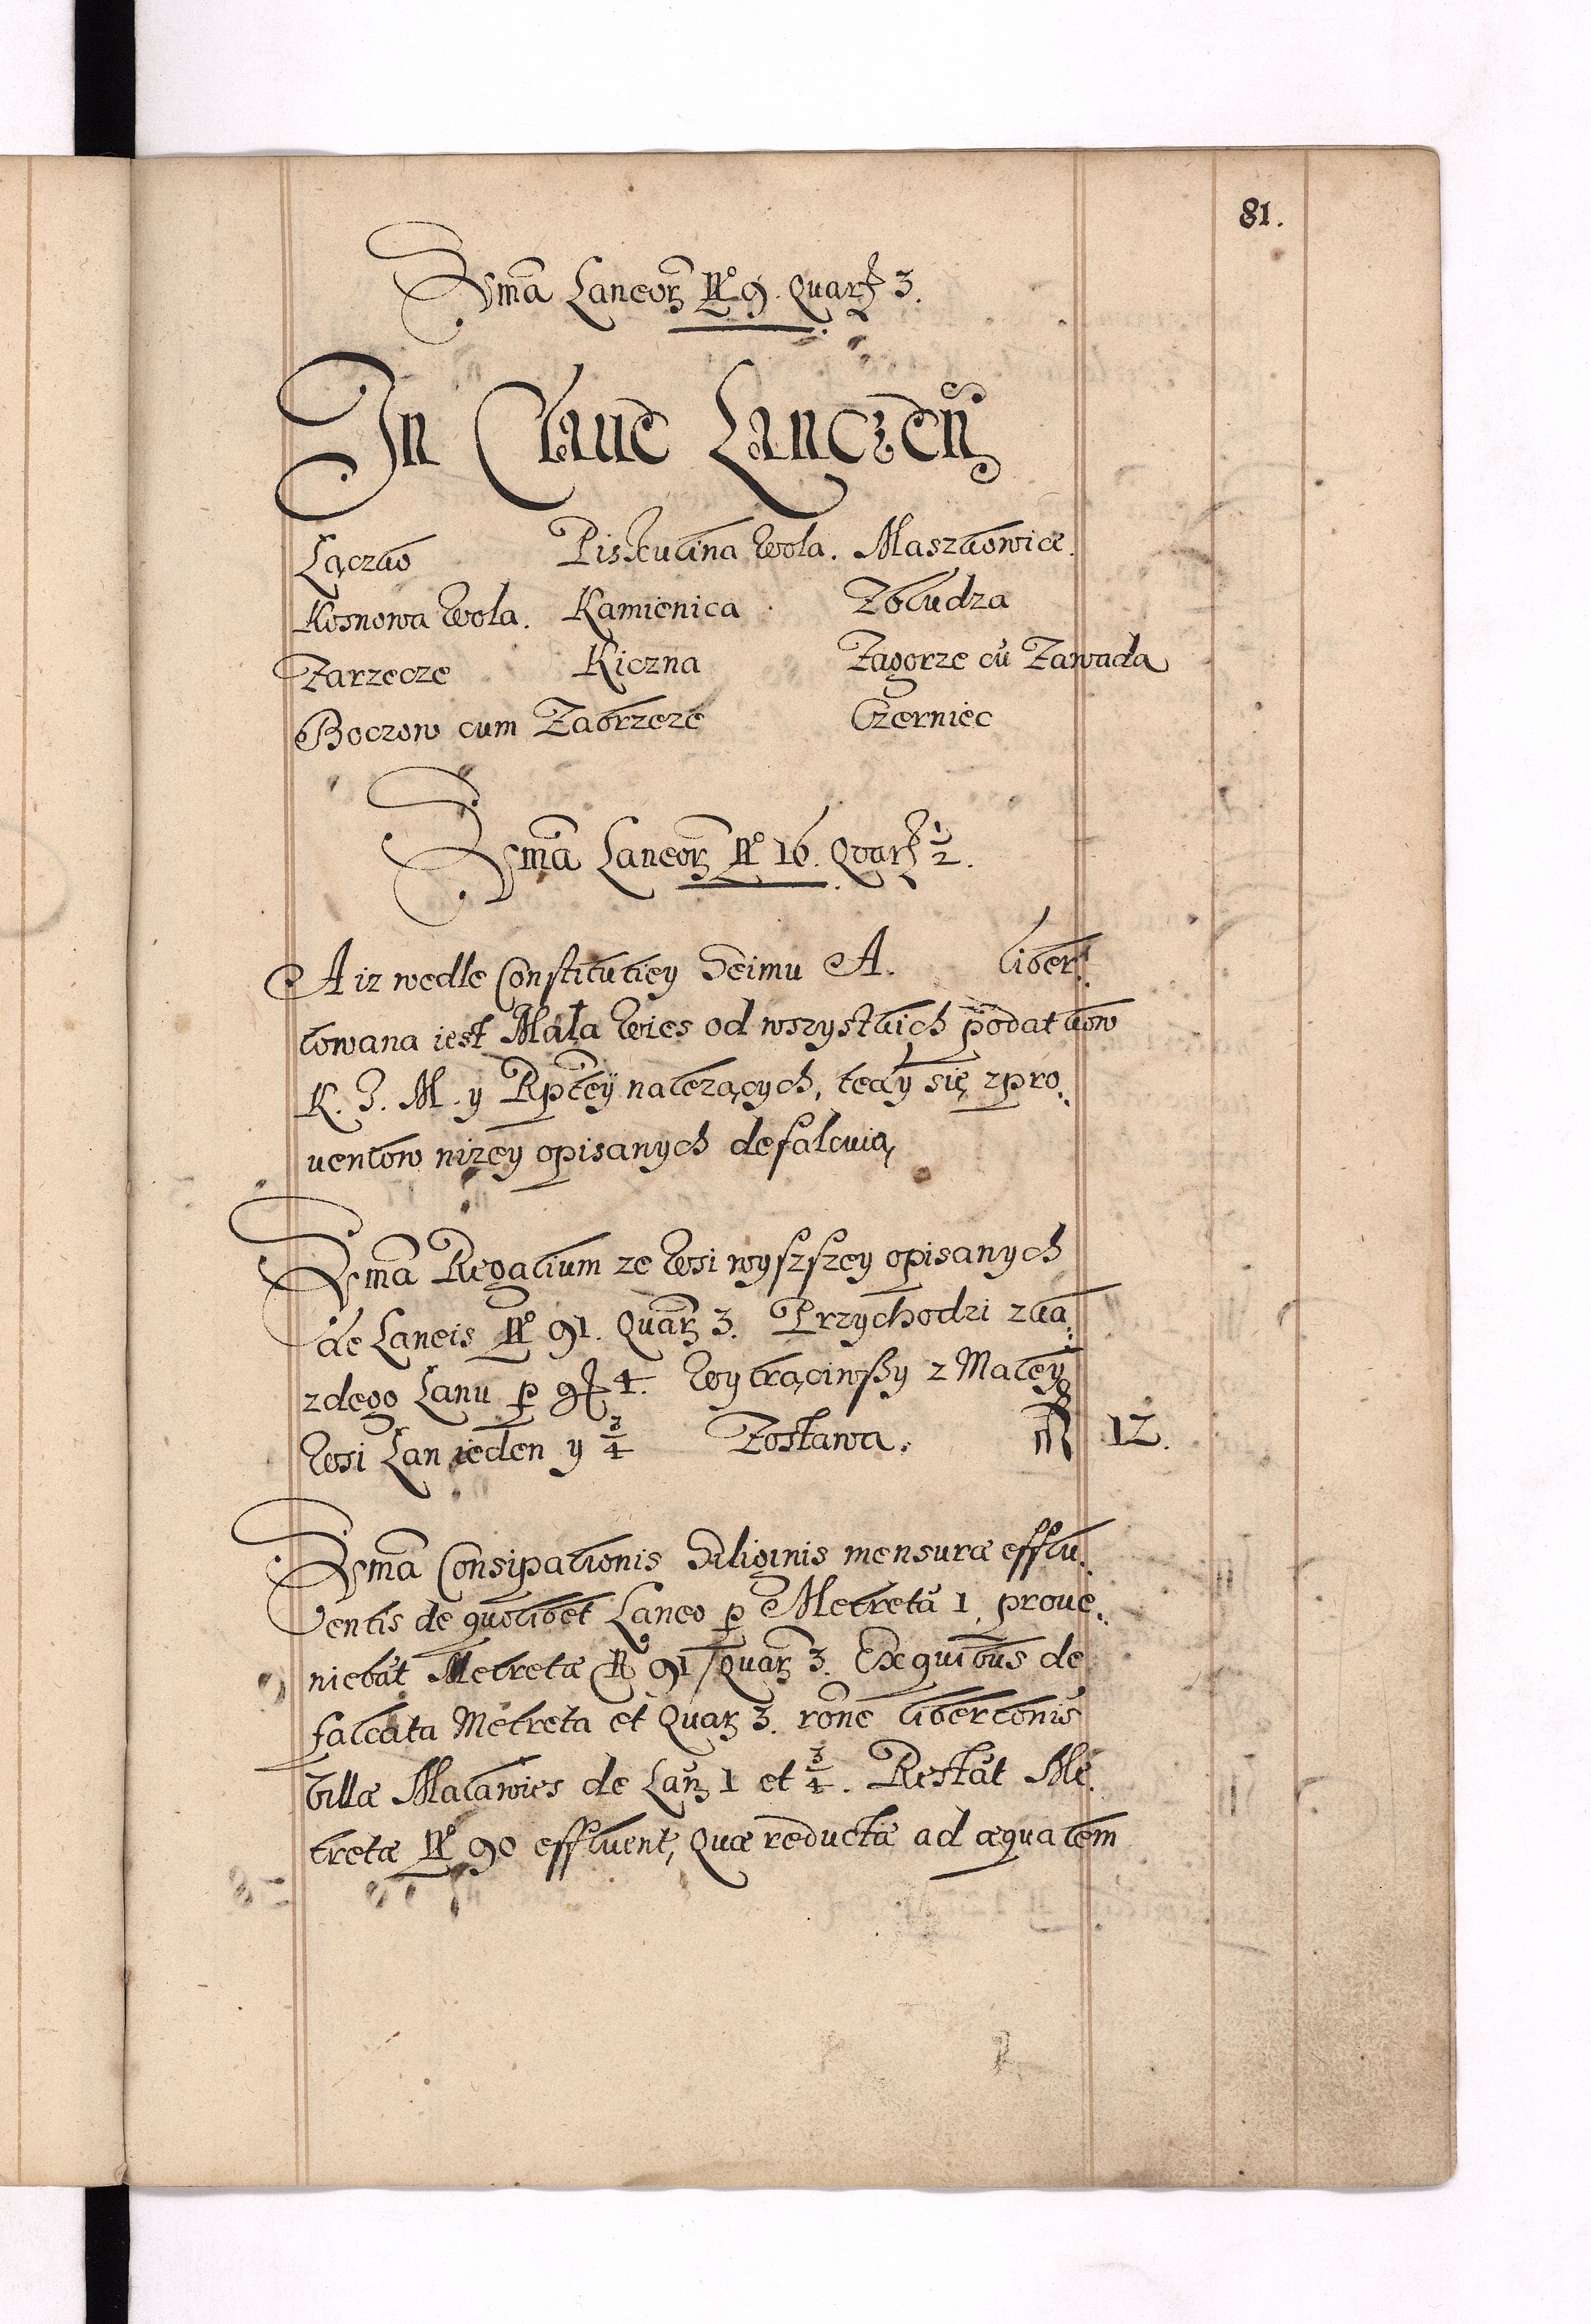 81.
Sum̃a Laneorꝫ Nº 9. Quarꝫ 3.
In Claue Lanczeñ
Lączko Piskulina Wola. Maszkowice.
Kosnowa Wola. Kamienica Zbludza
Zarzecze Kiczna Zagorze cũ Zawada
Boczow cum Zabrzeze Czerniec
Sum̃a Laneorꝫ Nº 16. Quarꝫ ½.
A iz wedle Constitutiey Seimu A. liber:
towana iest Mała Wies od wszystkich podatkow
K. J. M. y Rptey nalezących, tedy się z pro:
uentow nizey opisanych defalcuią
Sum̃a Regalium ze Wsi wyszszey opisanych
de Laneis Nº 91. Quarꝫ 3. Przychodzi z ka:
zdego Lanu p gꝫ 4. Wytrąciwszy z Małey
Wsi Lan ieden y ¾ Zostawa. 12.
Sum̃a Consipationis Siliginis mensuræ efflu:
entis de quolibet Laneo p Metretã 1, proue:
niebãt Metretæ Nº 91 Quarꝫ 3. Ex quibus de
falcata Metreta et Quarꝫ 3. rõne libertõnis
Villæ Malawies de Lanꝫ 1 et ¾. Restãt Me:
tretæ Nº 90 effluent, Quæ reductæ ad æqualem